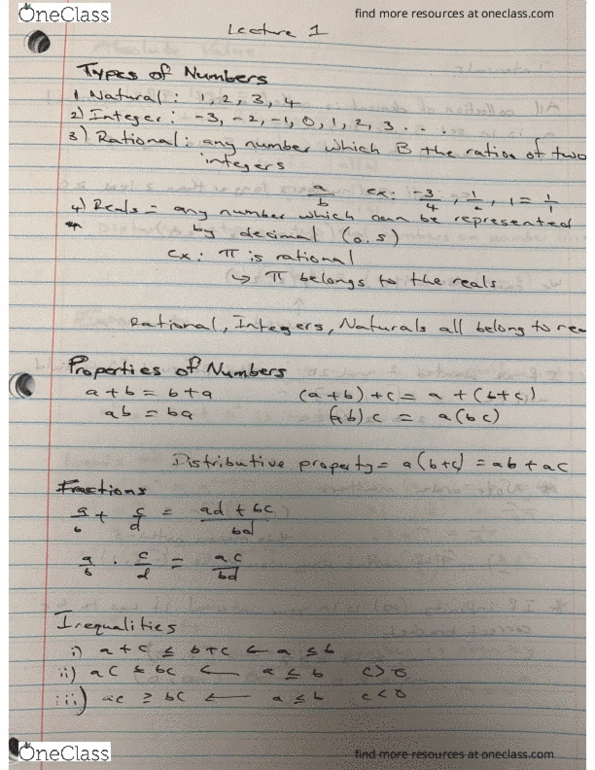 OneClass
find more resources at oneclass.com
Lecture 1
Types of Numbers
1. Natural: 1, 2, 3, 4
2) Integer: -3, -2, -1, 0, 1, 2, 3 . . .
3) Rational: any number which is the ration of two
integers
a/b ex: -3/4, 1/2, 1 = 1/1
4) Reals = any number which can be represented
by decimal (0.5)
ex: π is rational
↳ π belongs to the reals
Rational, Integers, Naturals all belong to rea
Properties of Numbers
a + b = b + a (a + b) + c = a + (b + c)
ab = ba (ab) c = a (bc)
Distributive property = a(b+c) = ab + ac
Fractions
a/b + c/d = ad + bc/bd
a/b · c/d = ac/bd
Inequalities
i) a + c ≤ b + c ← a ≤ b
ii) ac ≤ bc ← a ≤ b c > 0
iii) ac ≥ bc ← a ≤ b c < 0
OneClass
find more resources at oneclass.com